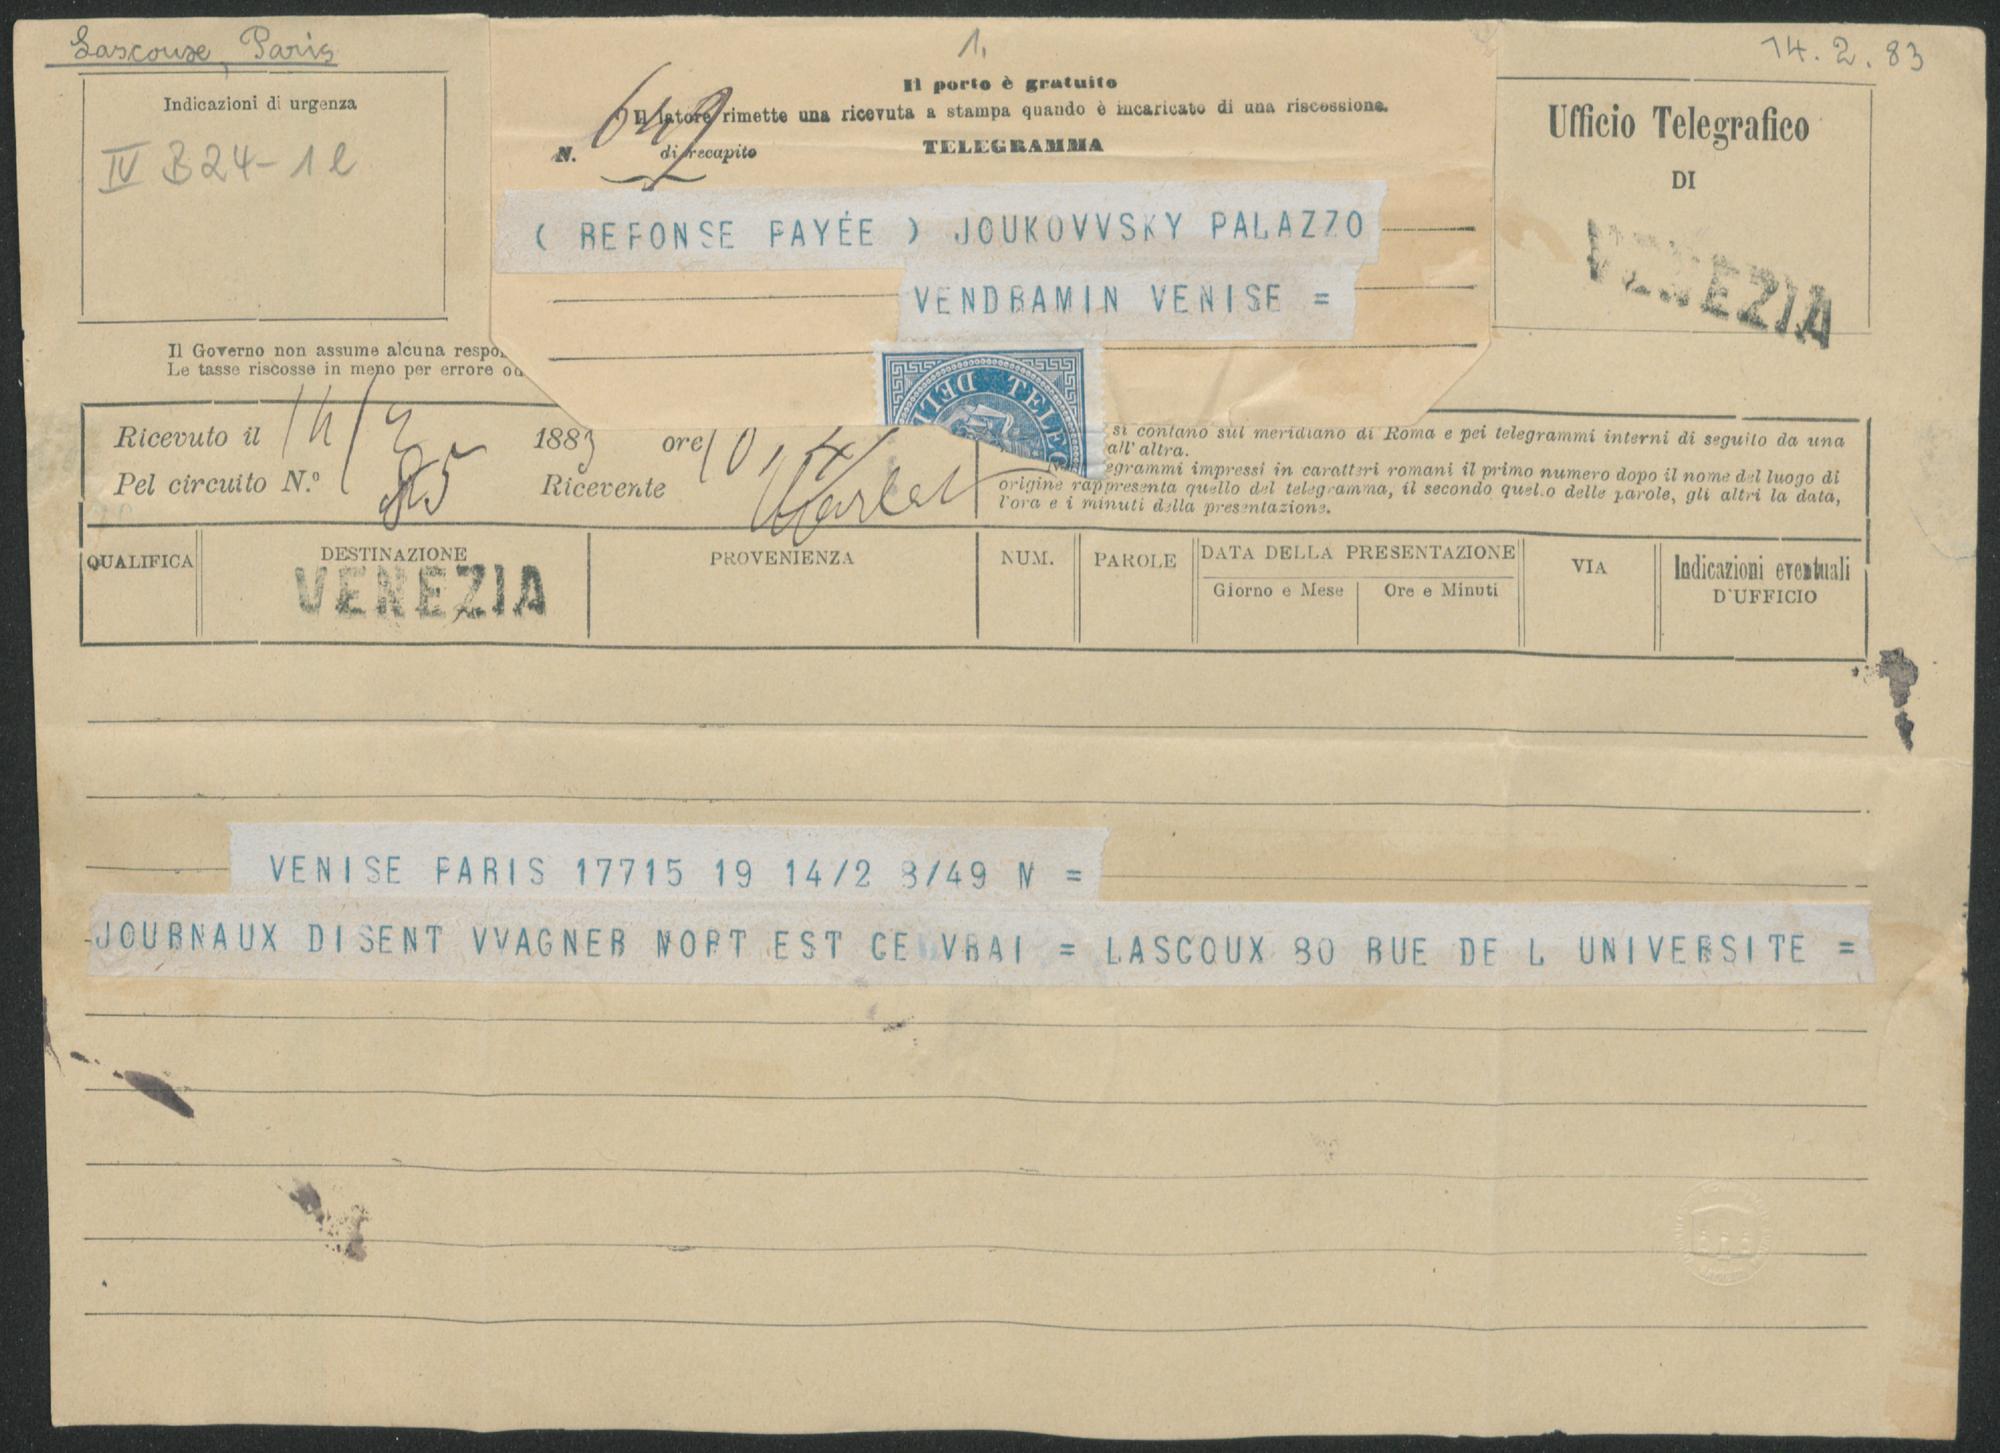 Lascoux, Paris
1.
14.2.83
Indicazioni di urgenza
IV B 24-1 l
Il porto è gratuito
Il latore rimette una ricevuta a stampa quando è incaricato di una riscossione.
N. 649 di recapito
TELEGRAMMA
Ufficio Telegrafico
DI
VENEZIA
( REPONSE PAYÉE ) JOUKOVVSKY PALAZZO
VENDRAMIN VENISE =
Il Governo non assume alcuna respo
Le tasse riscosse in meno per errore od
TELEG
DEI
Ricevuto il 14/2 1883 ore 10,
Pel circuito N.º 85 Ricevente
si contano sul meridiano di Roma e pei telegrammi interni di seguito da una
all'altra.
egrammi impressi in caratteri romani il primo numero dopo il nome del luogo di
origine rappresenta quello del telegramma, il secondo quello delle parole, gli altri la data,
l'ora e i minuti della presentazione.
QUALIFICA
DESTINAZIONE
VENEZIA
PROVENIENZA
NUM.
PAROLE
DATA DELLA PRESENTAZIONE
Giorno e Mese
Ore e Minuti
VIA
Indicazioni eventuali
D'UFFICIO
VENISE PARIS 17715 19 14/2 8/49 M =
JOURNAUX DISENT VVAGNER MORT EST CE VRAI = LASCOUX 80 RUE DE L UNIVERSITE =